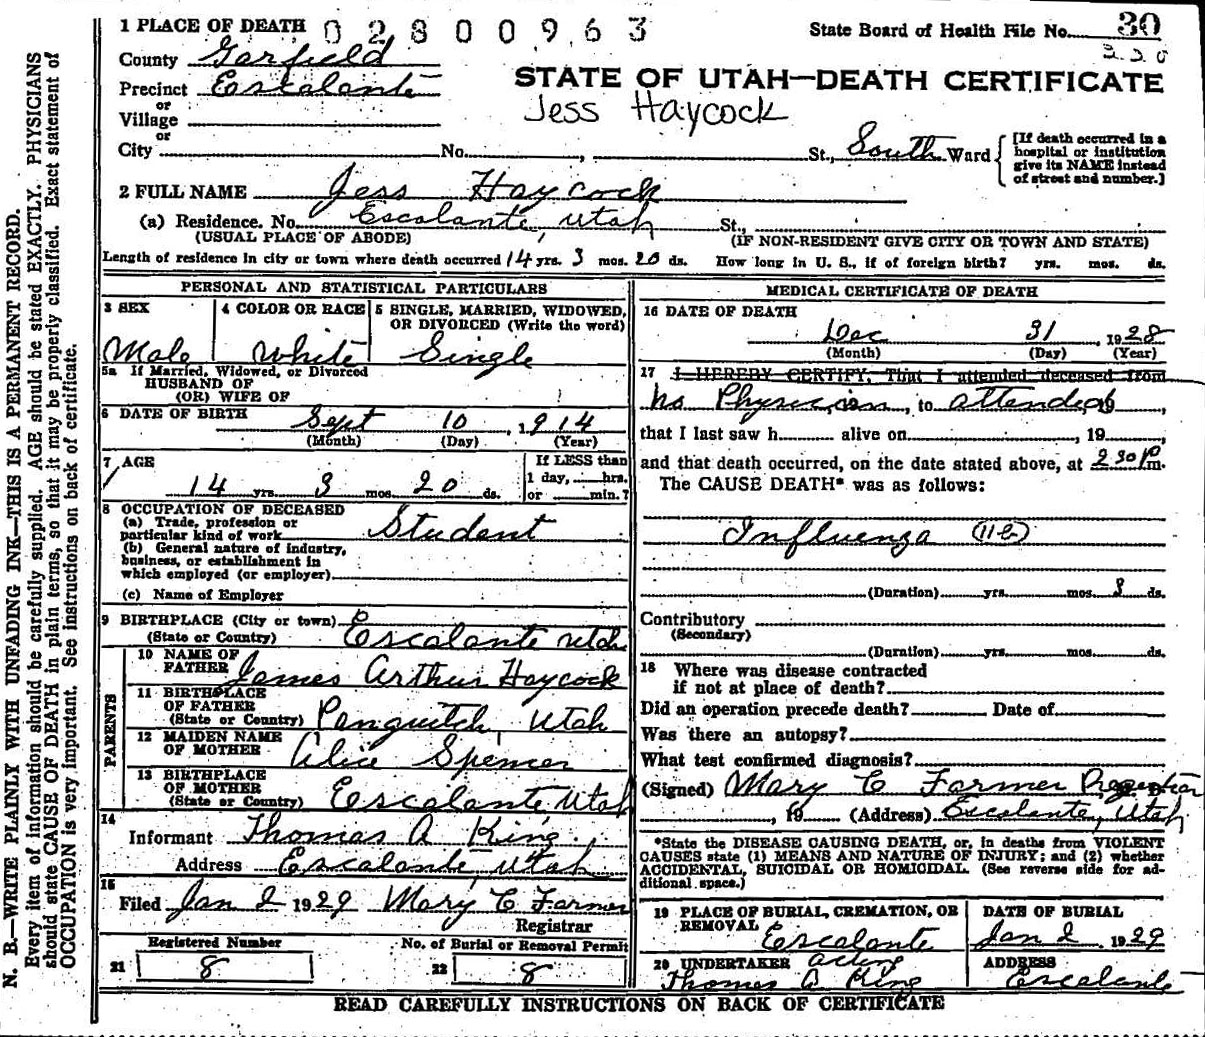 1 PLACE OF DEATH 02800963 State Board of Health File No. 30
330
County Garfield
STATE OF UTAH—DEATH CERTIFICATE
Precinct Escalante
or
Jess Haycock
Village
or
City No. , St., South Ward
[If death occurred in a hospital or institution give its NAME instead of street and number.]
2 FULL NAME Jess Haycock
(a) Residence. No. Escalante, Utah St.,
(USUAL PLACE OF ABODE) (IF NON-RESIDENT GIVE CITY OR TOWN AND STATE)
Length of residence in city or town where death occurred 14 yrs. 3 mos. 20 ds. How long in U. S., if of foreign birth? yrs. mos. ds.
PERSONAL AND STATISTICAL PARTICULARS
3 SEX 4 COLOR OR RACE 5 SINGLE, MARRIED, WIDOWED,
OR DIVORCED (Write the word)
Male White Single
5a If Married, Widowed, or Divorced
HUSBAND OF
(OR) WIFE OF
6 DATE OF BIRTH Sept 10, 1914
(Month) (Day) (Year)
7 AGE If LESS than
1 day, hrs.
14 yrs. 3 mos. 20 ds. or min.?
8 OCCUPATION OF DECEASED
(a) Trade, profession or
particular kind of work Student
(b) General nature of industry,
business, or establishment in
which employed (or employer)
(c) Name of Employer
9 BIRTHPLACE (City or town)
(State or Country) Escalante Utah
PARENTS
10 NAME OF
FATHER James Arthur Haycock
11 BIRTHPLACE
OF FATHER
(State or Country) Panguitch, Utah
12 MAIDEN NAME
OF MOTHER Alice Spencer
13 BIRTHPLACE
OF MOTHER
(State or Country) Escalante, Utah
14
Informant Thomas A King
Address Escalante, Utah
15
Filed Jan 2 1929 Mary C Farmer
Registrar
Registered Number No. of Burial or Removal Permit
21 8 22 8
MEDICAL CERTIFICATE OF DEATH
16 DATE OF DEATH
Dec 31, 1928
(Month) (Day) (Year)
17 I HEREBY CERTIFY, That I attended deceased from
No Physician, to attended, 19
that I last saw h alive on , 19
and that death occurred, on the date stated above, at 2 30 P m.
The CAUSE DEATH* was as follows:
Influenza (11-b)
(Duration) yrs. mos. 8 ds.
Contributory
(Secondary)
(Duration) yrs. mos. ds.
18 Where was disease contracted
if not at place of death?
Did an operation precede death? Date of
Was there an autopsy?
What test confirmed diagnosis?
(Signed) Mary C Farmer
, 19 (Address) Escalante, Utah
*State the DISEASE CAUSING DEATH, or, in deaths from VIOLENT
CAUSES state (1) MEANS AND NATURE OF INJURY; and (2) whether
ACCIDENTAL, SUICIDAL OR HOMICIDAL. (See reverse side for ad-
ditional space.)
19 PLACE OF BURIAL, CREMATION, OR DATE OF BURIAL
REMOVAL
Escalante Jan 2 1929
20 UNDERTAKER acting ADDRESS
Thomas A King Escalante
READ CAREFULLY INSTRUCTIONS ON BACK OF CERTIFICATE
N. B.—WRITE PLAINLY WITH UNFADING INK—THIS IS A PERMANENT RECORD.
Every item of information should be carefully supplied. AGE should be stated EXACTLY. PHYSICIANS
should state CAUSE OF DEATH in plain terms, so that it may be properly classified. Exact statement of
OCCUPATION is very important. See instructions on back of certificate.